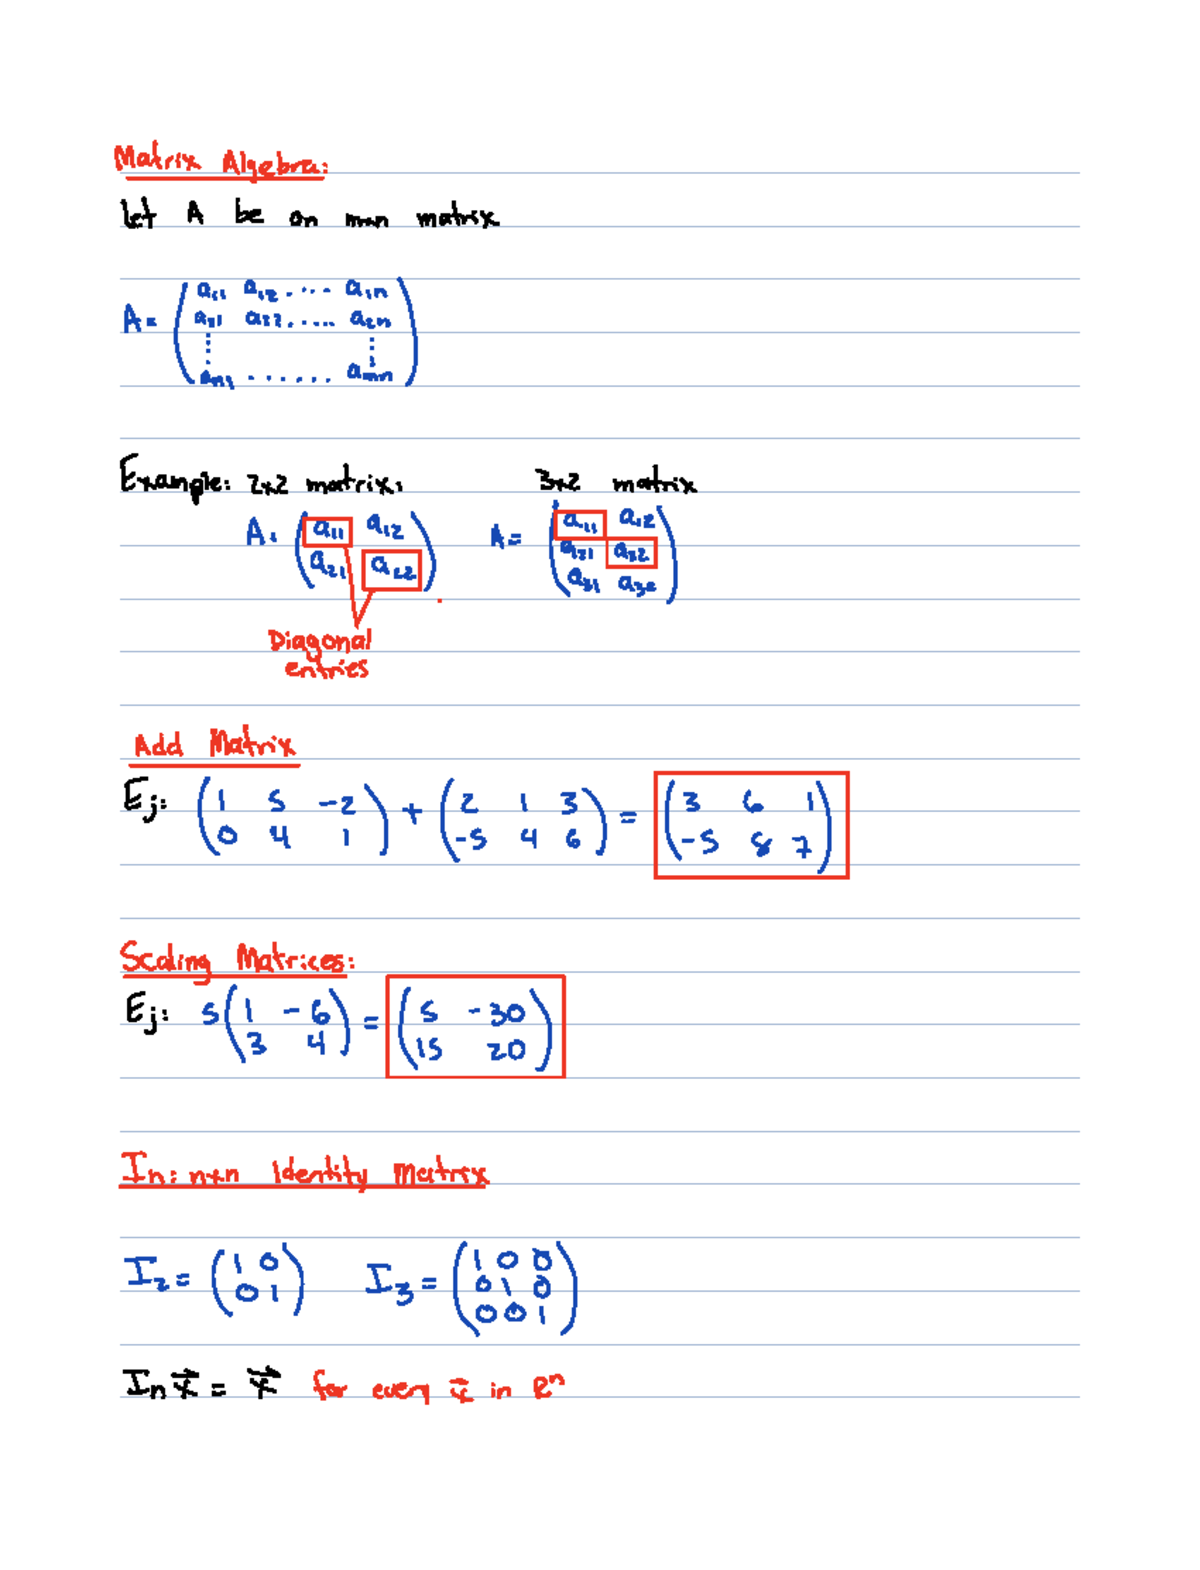 Matrix Algebra:
Let A be an m×n matrix
a11 a12 . . . . . a1n
A = a21 a22 . . . . . a2n
an1 . . . . . . . amn
Example: 2×2 matrix: 3×2 matrix
A = ( a11 a12 A = ( a11 a12
a21 a22 ) a21 a22
a31 a32 )
Diagonal
entries
Add Matrix
Ej: ( 1 5 -2 ) + ( 2 1 3 ) = ( 3 6 1 )
( 0 4 1 ) ( -5 4 6 ) ( -5 8 7 )
Scaling Matrices:
Ej: 5 ( 1 -6 ) = ( 5 -30 )
( 3 4 ) ( 15 20 )
In: n×n Identity Matrix
I2 = ( 1 0 ) I3 = ( 1 0 0 )
( 0 1 ) ( 0 1 0 )
( 0 0 1 )
In x⃗ = x⃗ for every x⃗ in Rⁿ